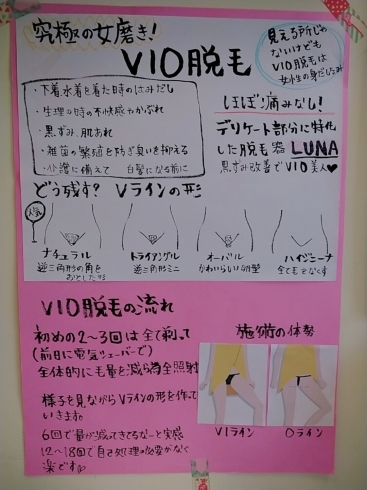 究極の女磨き!
VIO脱毛
見える所じゃ
ないけども
VIO脱毛は
女性の身だしなみ
・下着水着を着た時のはみだし
・生理の時の不快感やかぶれ
・黒ずみ、肌あれ
・雑菌の繁殖を防ぎ臭いを抑える
・介護に備えて 白髪になる前に
ほぼ痛みなし!
デリケート部分に特化
した脱毛器 LUNA
黒ずみ改善でVIO美人♥
どう残す? Vラインの形
人気
ナチュラル
逆三角形の角を
おとした形
トライアングル
逆三角形ミニ
オーバル
かわいらしい卵型
ハイジニーナ
全てをなくす
VIO脱毛の流れ
初めの2〜3回は全て剃って
(前日に電気シェーバーで)
全体的に毛量を減らす為全照射
様子を見ながらVラインの形を作って
いきます。
6回で量が減ってきてるなーと実感
12〜18回で自己処理の必要がなく
楽です
施術の体勢
VIライン
Oライン